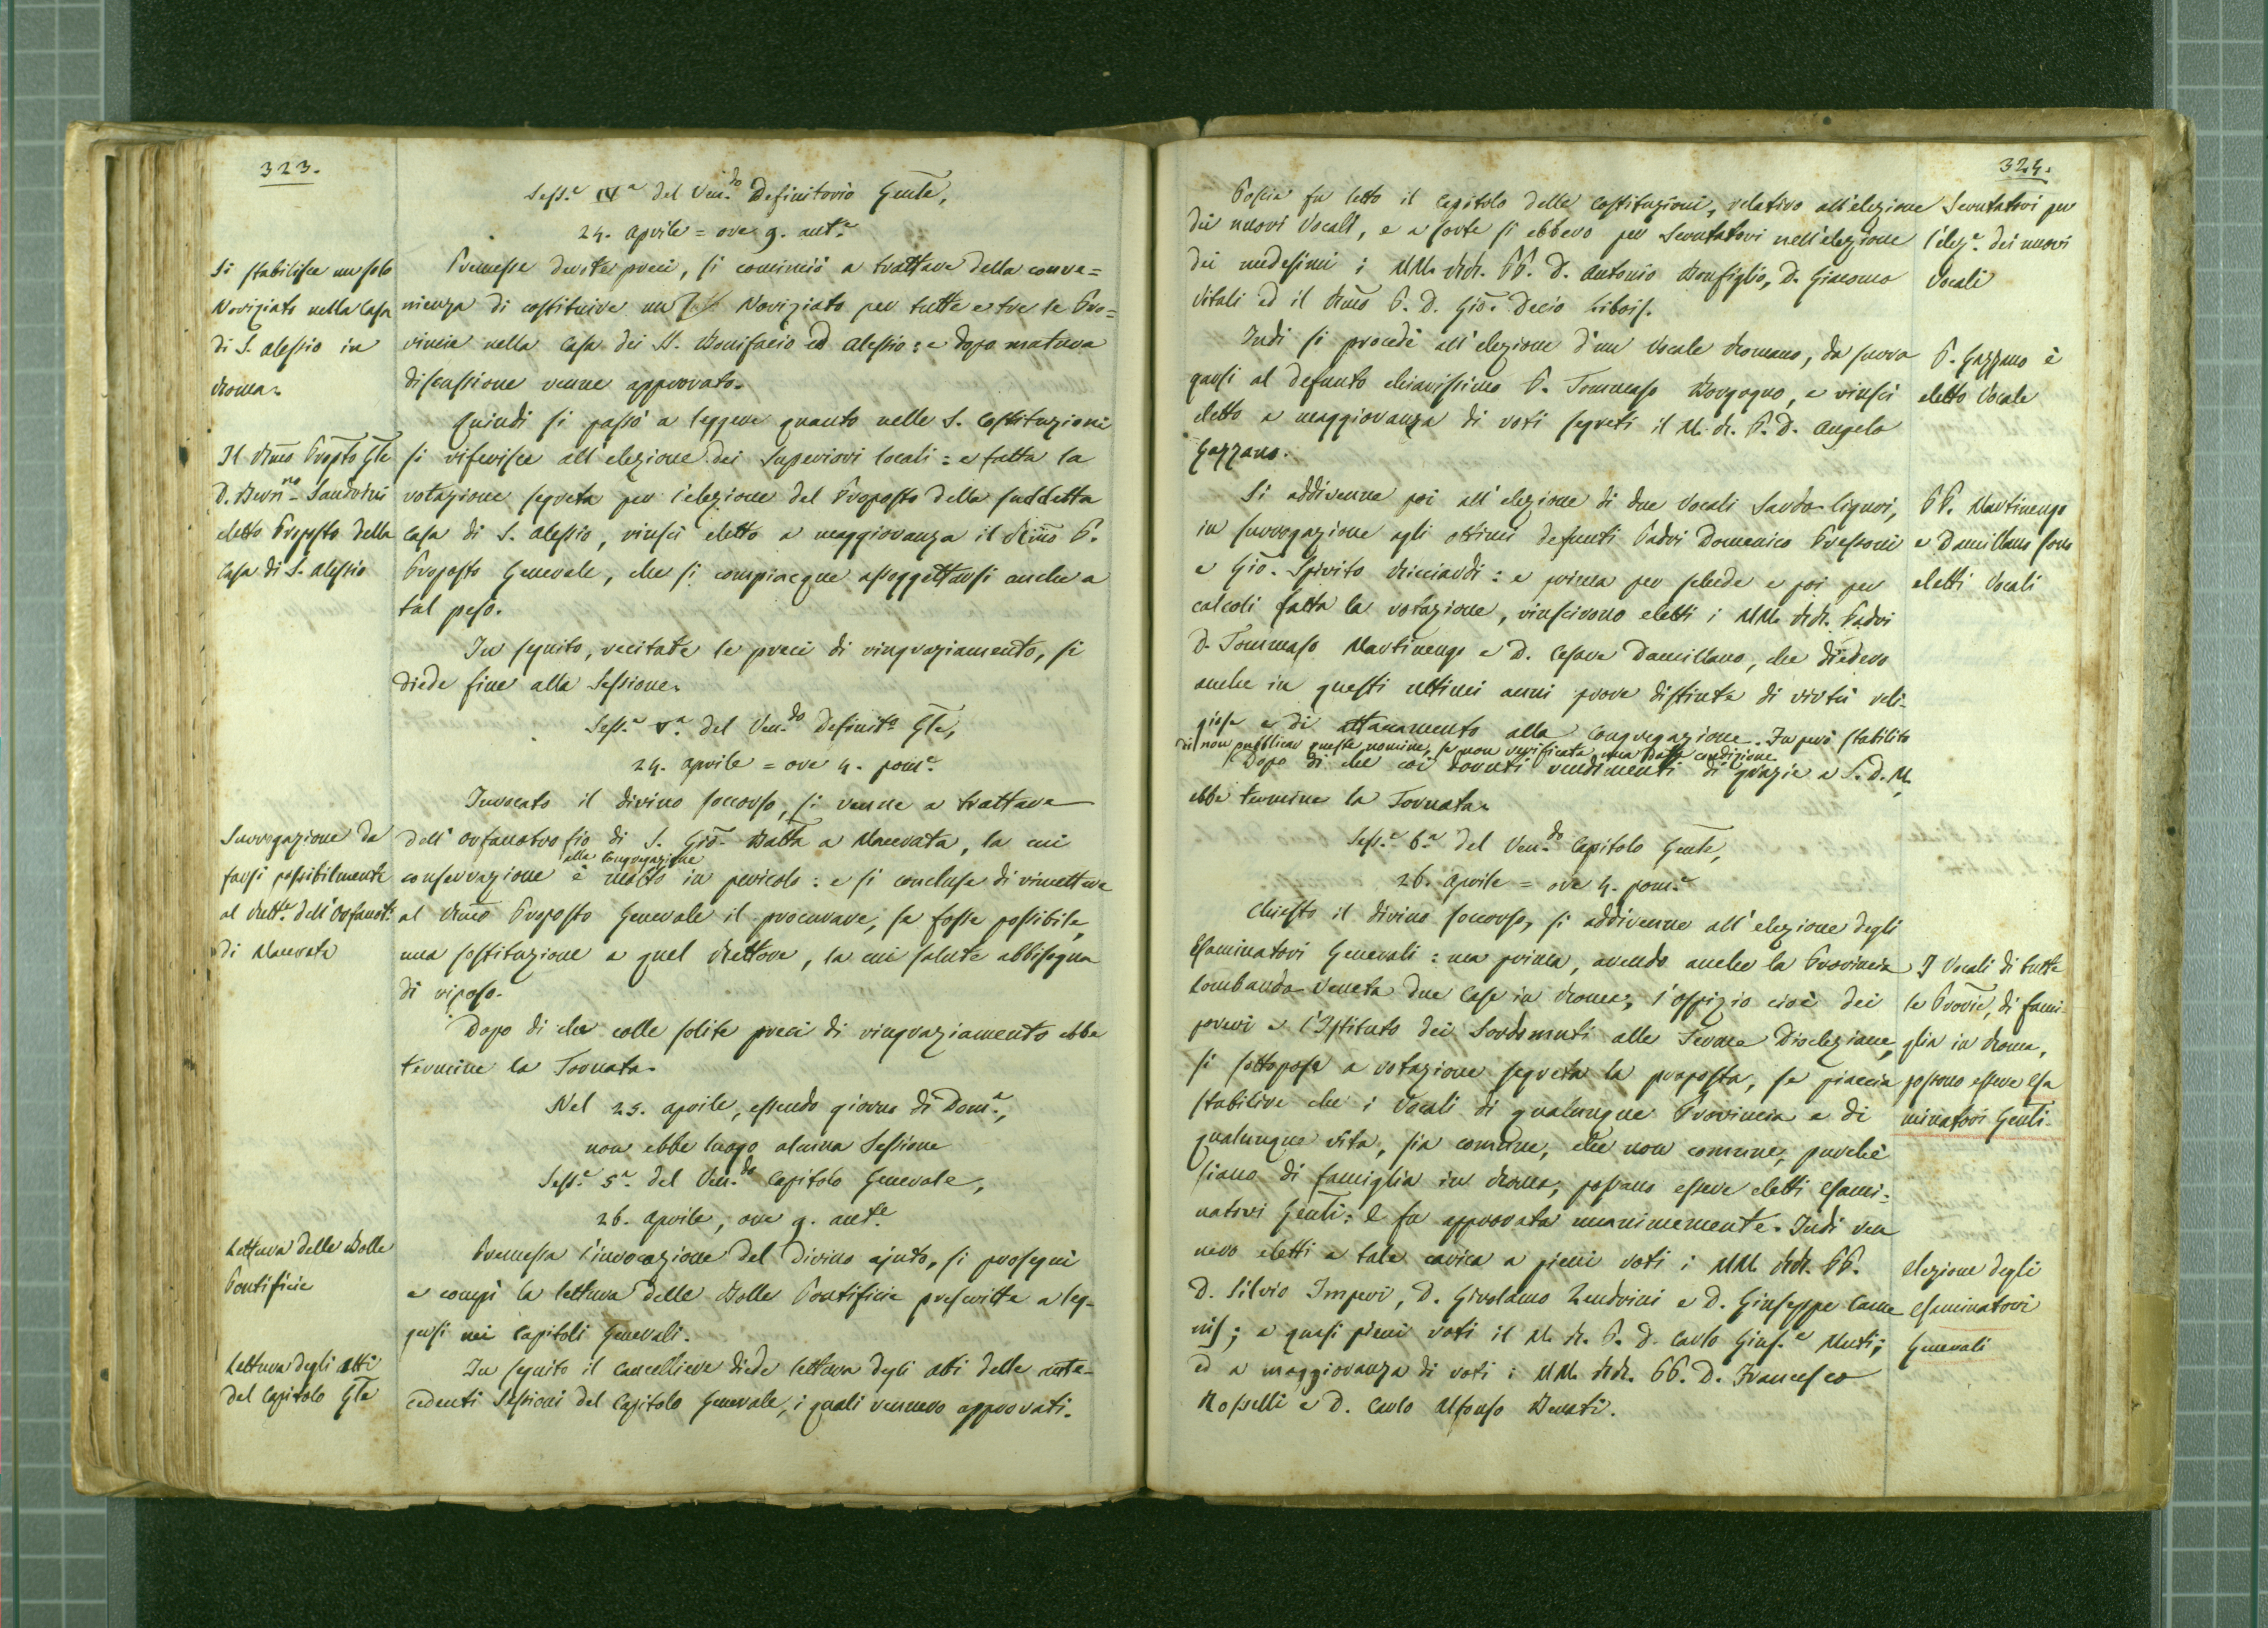 323.
Sess.e IVa del Ven.do Definitorio Genle,
24. aprile = ore 9. ant.e
Si stabilisce un solo
Noviziato nella Casa
di S. Alessio in
Roma.
Premesse devote preci, si cominciò a trattare della conve=
nienza di costituire un Noviziato per tutte e tre le Pro=
vincie nella Casa dei SS. Bonifacio ed Alessio: e dopo matura
discussione venne approvato.
Quindi si passò a leggere quanto nelle S. Costituzioni
Il Rmo Propto Gle
D. Bernno Sandrini
eletto Proposto della
Casa di S. Alessio
si riferisce all'elezione dei Superiori locali: e fatta la
votazione segreta per l'elezione del Proposto della suddetta
Casa di S. Alessio, riuscì eletto a maggioranza il Rmo P.
Proposto Generale, che si compiacque assoggettarsi anche a
tal peso.
In seguito, recitate le preci di ringraziamento, si
diede fine alla Sessione.
Sess.e Va del Ven.do Definito Gle,
24. aprile = ore 4. pom.e
Invocato il divino soccorso, si venne a trattare
Surrogazione da
farsi possibilmente
al Rett.e dell'Orfanot.
di Macerata
dell'Orfanotrofio di S. Gio. Batta a Macerata, la cui
alla Congregazione
conservazione è molto in pericolo: e si concluse di rimettere
al Rmo Proposto Generale il procurare, se fosse possibile,
una sostituzione a quel Rettore, la cui salute abbisogna
di riposo.
Dopo di che colle solite preci di ringraziamento ebbe
termine la Tornata.
Nel 25. aprile, essendo giorno di Dom.a,
non ebbe luogo alcuna Sessione
Sess.e 5a. del Ven.do Capitolo Generale,
26. aprile, ore 9. ant.e
Lettura delle Bolle
Pontificie
Premessa l'invocazione del Divino ajuto, si proseguì
e compì la lettura delle Bolle Pontificie prescritte a leg-
gersi nei Capitoli Generali.
Lettura degli Atti
del Capitolo Gle
In seguito il Cancelliere diede lettura degli atti delle ante-
cedenti Sessioni del Capitolo Generale, i quali vennero approvati.
324.
Poscia fu letto il Capitolo delle Costituzioni, relativo all'elezione
dei nuovi Vocali, e a sorte si ebbero per Scrutatori nell'elezione
dei medesimi i MM. RR. PP. D. Antonio Bonfiglio, D. Giacomo
Vitali ed il Rmo P. D. Gio. Decio Libois.
Scrutatori per
l'elez.e dei nuovi
Vocali
Indi si procedè all'elezione d'un Vocale Romano, da surro
garsi al defunto chiarissimo P. Tommaso Borgogno, e riuscì
eletto a maggioranza di voti segreti il M. R. P. D. Angelo
Gazzano.
P. Gazzano è
eletto Vocale
Si addivenne poi all'elezione di due Vocali Sardo-liguri,
in surrogazione agli ottimi defunti Padri Domenico Pressoni
e Gio. Spirito Ricciardi: e prima per schede e poi per
calcoli fatta la votazione, riuscirono eletti i MM. RR. Padri
D. Tommaso Martinengo e D. Cesare Damillano, che diedero
anche in questi ultimi anni prove distinte di virtù reli-
giose e di attaccamento alla Congregazione. Fu però stabilito
di non pubblicar queste nomine, se non verificata una data condizione
PP. Martinengo
e Damillano sono
eletti Vocali
Dopo di che coi dovuti rendimenti di grazie a S. D. M.
ebbe termine la Tornata.
Sess.e 6a del Ven.do Capitolo Genle,
26. aprile = ore 4. pom.e
Chiesto il divino soccorso, si addivenne all'elezione degli
Esaminatori Generali: ma prima, avendo anche la Provincia
Lombardo-Veneta due Case in Roma, l'ospizio cioè dei
poveri e l'Istituto dei Sordomuti alle Terme Diocleziane,
si sottopose a votazione segreta la proposta, se piaccia
stabilire che i Vocali di qualunque Provincia e di
qualunque vita, sia comune, che non comune, purchè
siano di famiglia in Roma, possano essere eletti Esami-
natori Genli: E fu approvata unanimemente. Indi ven
nero eletti a tale carica a pieni voti i MM. RR. PP.
D. Silvio Imperi, D. Girolamo Zendrini e D. Giuseppe Came
nis; a quasi pieni voti il M. R. P. D. Carlo Gius.e Muti;
ed a maggioranza di voti i MM. RR. PP. D. Francesco
Rosselli e D. Carlo Alfonso Benati.
I Vocali di tutte
le Provie, di fami
glia in Roma,
possono essere Esa
minatori Genli.
Elezione degli
Esaminatori
Generali